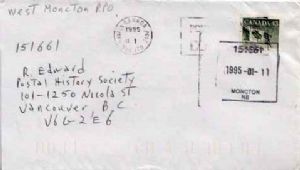 West Moncton RPO
CANADA
1995
CANADA 43
151661
151661
1995-01-11
MONCTON
NB
R Edward
Postal History Society
101-1250 Nicola St
Vancouver, B,C
V6G-2E6